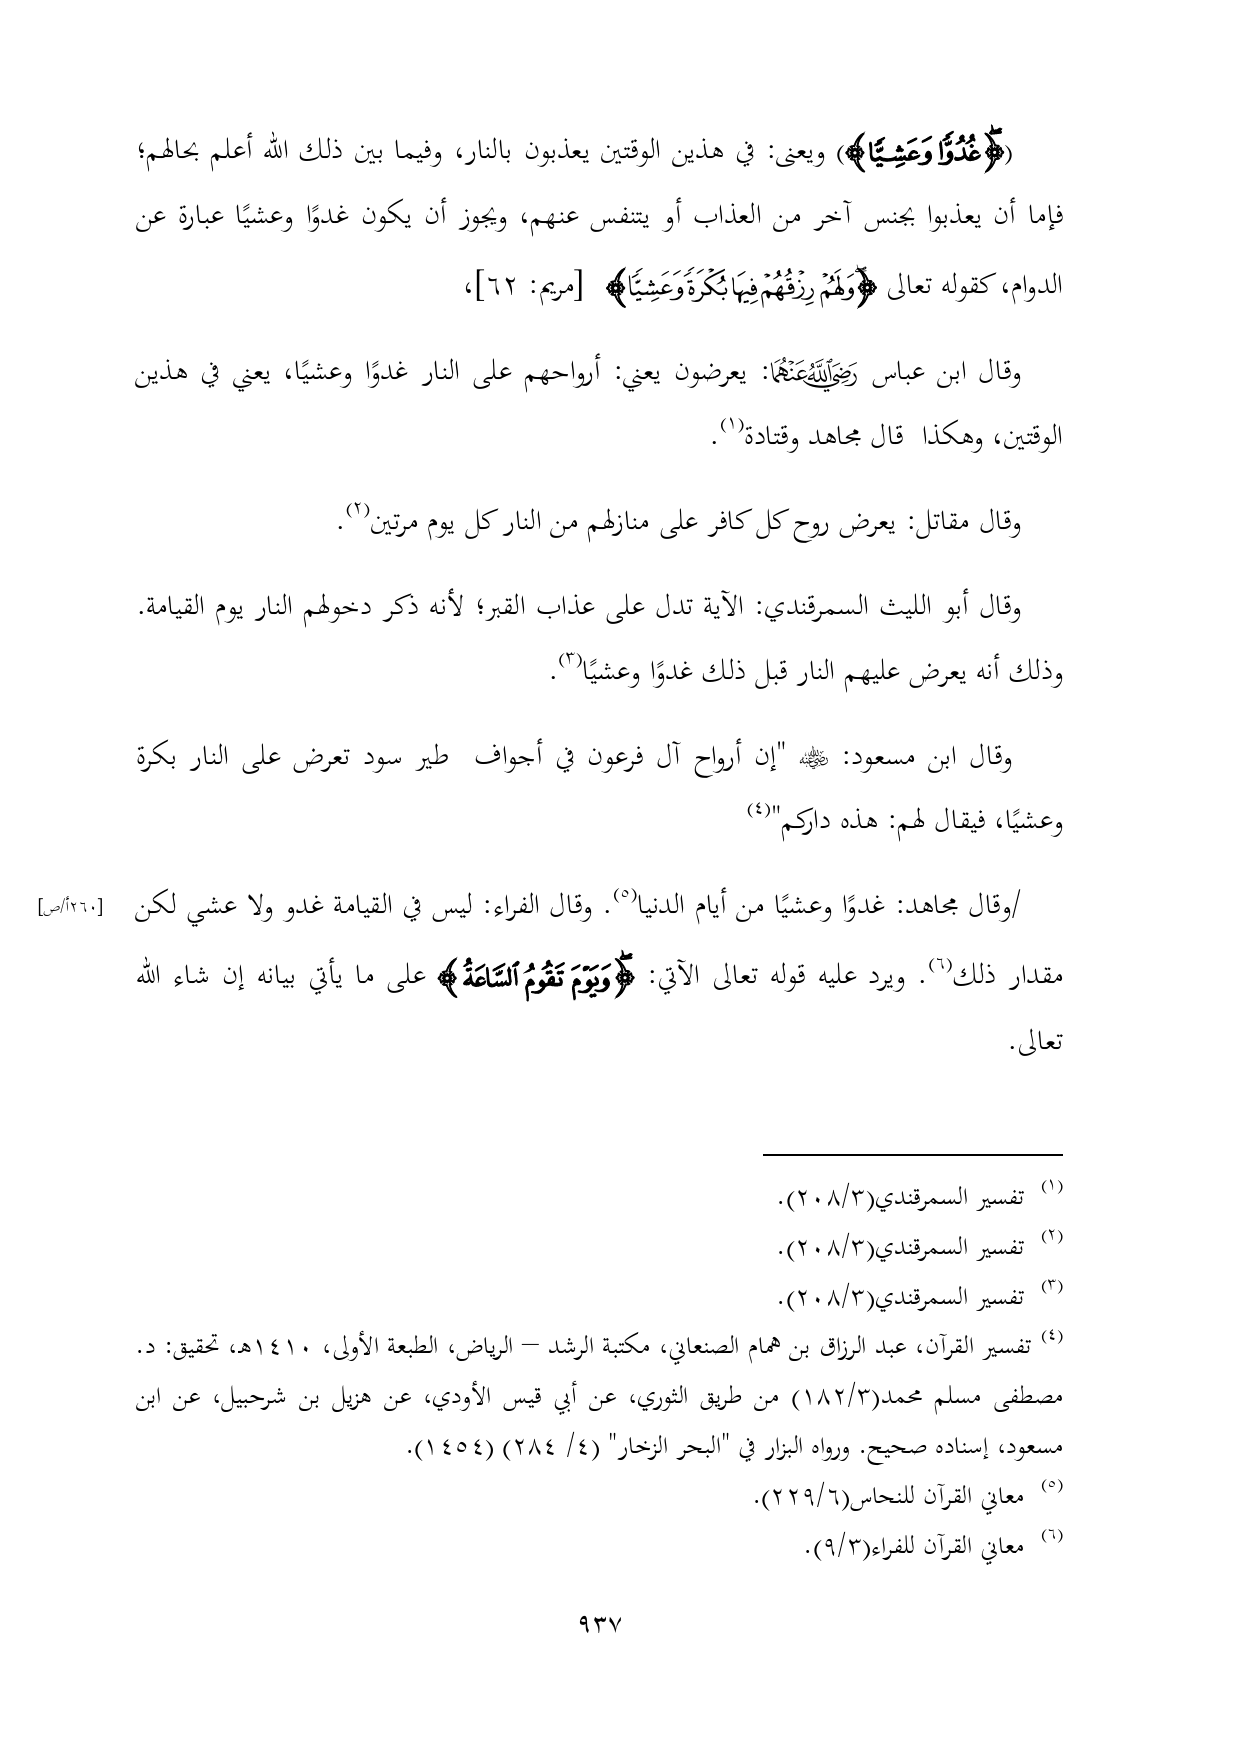 (﴿غُدُوًّا وَعَشِيًّا﴾) ويعنى: في هذين الوقتين يعذبون بالنار، وفيما بين ذلك الله أعلم بحالهم؛
فإما أن يعذبوا بجنس آخر من العذاب أو يتنفس عنهم، ويجوز أن يكون غدوًا وعشيًا عبارة عن
الدوام، كقوله تعالى ﴿وَلَهُمْ رِزْقُهُمْ فِيهَا بُكْرَةً وَعَشِيًّا﴾ [مريم: ٦٢]،
وقال ابن عباس رَضِيَ ٱللَّهُ عَنْهُمَا: يعرضون يعني: أرواحهم على النار غدوًا وعشيًا، يعني في هذين
الوقتين، وهكذا قال مجاهد وقتادة(١).
وقال مقاتل: يعرض روح كل كافر على منازلهم من النار كل يوم مرتين(٢).
وقال أبو الليث السمرقندي: الآية تدل على عذاب القبر؛ لأنه ذكر دخولهم النار يوم القيامة.
وذلك أنه يعرض عليهم النار قبل ذلك غدوًا وعشيًا(٣).
وقال ابن مسعود: رضي الله عنه "إن أرواح آل فرعون في أجواف طير سود تعرض على النار بكرة
وعشيًا، فيقال لهم: هذه داركم"(٤)
/وقال مجاهد: غدوًا وعشيًا من أيام الدنيا(٥). وقال الفراء: ليس في القيامة غدو ولا عشي لكن [٢٦٠أ/ص]
مقدار ذلك(٦). ويرد عليه قوله تعالى الآتي: ﴿وَيَوْمَ تَقُومُ ٱلسَّاعَةُ﴾ على ما يأتي بيانه إن شاء الله
تعالى.
(١) تفسير السمرقندي(٢٠٨/٣).
(٢) تفسير السمرقندي(٢٠٨/٣).
(٣) تفسير السمرقندي(٢٠٨/٣).
(٤) تفسير القرآن، عبد الرزاق بن همام الصنعاني، مكتبة الرشد – الرياض، الطبعة الأولى، ١٤١٠هـ، تحقيق: د.
مصطفى مسلم محمد(١٨٢/٣) من طريق الثوري، عن أبي قيس الأودي، عن هزيل بن شرحبيل، عن ابن
مسعود، إسناده صحيح. ورواه البزار في "البحر الزخار" (٤/ ٢٨٤) (١٤٥٤).
(٥) معاني القرآن للنحاس(٢٢٩/٦).
(٦) معاني القرآن للفراء(٩/٣).
٩٣٧